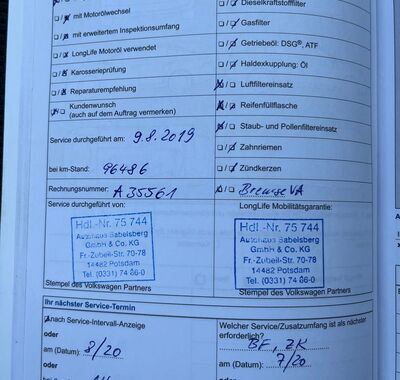 mit Motorölwechsel
mit erweitertem Inspektionsumfang
LongLife Motoröl verwendet
Karosserieprüfung
Reparaturempfehlung
Kundenwunsch
(auch auf dem Auftrag vermerken)
Service durchgeführt am: 9.8.2019
bei km-Stand: 96486
Rechnungsnummer: A35561
Service durchgeführt von:
Hdl.-Nr. 75 744
Autohaus Babelsberg
GmbH & Co. KG
Fr.-Zubeil-Str. 70-78
14482 Potsdam
Tel. (0331) 74 86-0
Stempel des Volkswagen Partners
Dieselkraftstofffilter
Gasfilter
Getriebeöl: DSG®, ATF
Haldexkupplung: Öl
Luftfiltereinsatz
Reifenfüllflasche
Staub- und Pollenfiltereinsatz
Zahnriemen
Zündkerzen
Bremse VA
LongLife Mobilitätsgarantie:
Hdl.-Nr. 75 744
Autohaus Babelsberg
GmbH & Co. KG
Fr.-Zubeil-Str. 70-78
14482 Potsdam
Tel. (0331) 74 86-0
Stempel des Volkswagen Partners
Ihr nächster Service-Termin
Nach Service-Intervall-Anzeige
oder
am (Datum): 8/20
oder
Welcher Service/Zusatzumfang ist als nächster
erforderlich?
BF, ZK
am (Datum): 7/20
oder